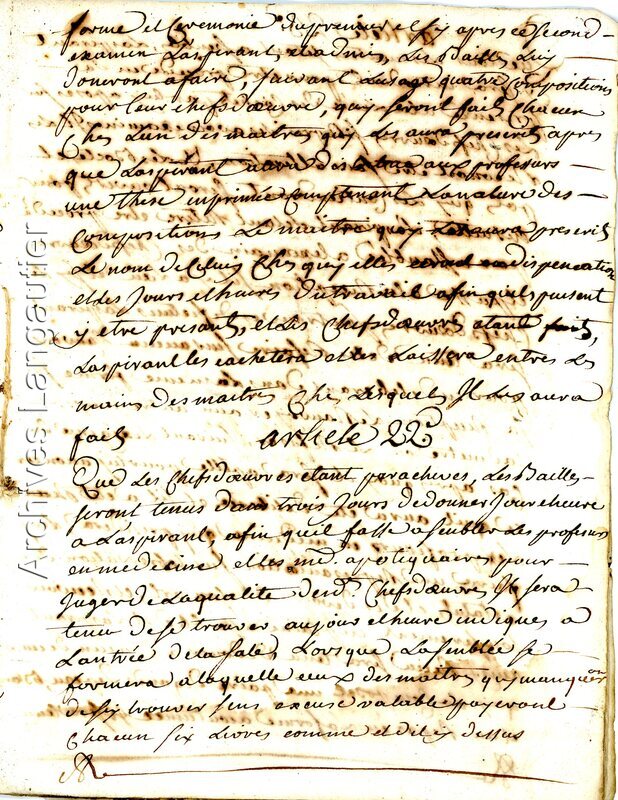 forme et Ceremonie du premier et sy apres ce second
examen Laspirant, et admis, Les Bailles Luy
doneront a faire, suivant Lusage quatre Compositions
pour leur chefsdoeuvre, quy seront faits Chacun
Ches Lun des maitres quy Les aura prescrits apres
que Laspirant aura aux profesurs
une these inprimée Contenant Lanature des
Compositions Le maitre quy Lesaura prescrit
Le nom de Celuy Ches quy elles dispensation
et des Jours et heures du travail afin quils puisent
y etre presants, et Les Chefsdoeuvres etant faits,
Laspirant les cachetera et les Laissera entres Les
mains des maitres Ches Lesquels Il Les aura
faits article 22e
Que Les Chefsdoeuvres etant paracheves, Les Bailles
seront tenus dans trois Jours dedonner Jour et heure
a Laspirant, afin quil fasse asembler Les profesurs
en medecine et les md. apotiquaires pour
Juger de Laqualite desd. Chefsdoeuvres Il sera
tenu de se trouver aujour et heure indiques a
Lantrée de la sale, Lorsque Lasemblée se
formera a laquelle ceux des maitres quy manqueron
de sy trouver sens excuse valable payeront
Chacun six Livres comme et dit cy dessus
Archives Langautier